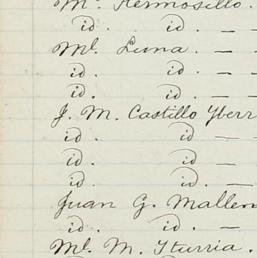 M. Hermosillo.
id. id. — —
Ml. Luna. — —
id. id. — —
id. id. —
J. M. Castillo Yberr
id. id —
id. id —
id. id. —
Juan G. Mallen
id. id. —
Ml. M. Yturria.